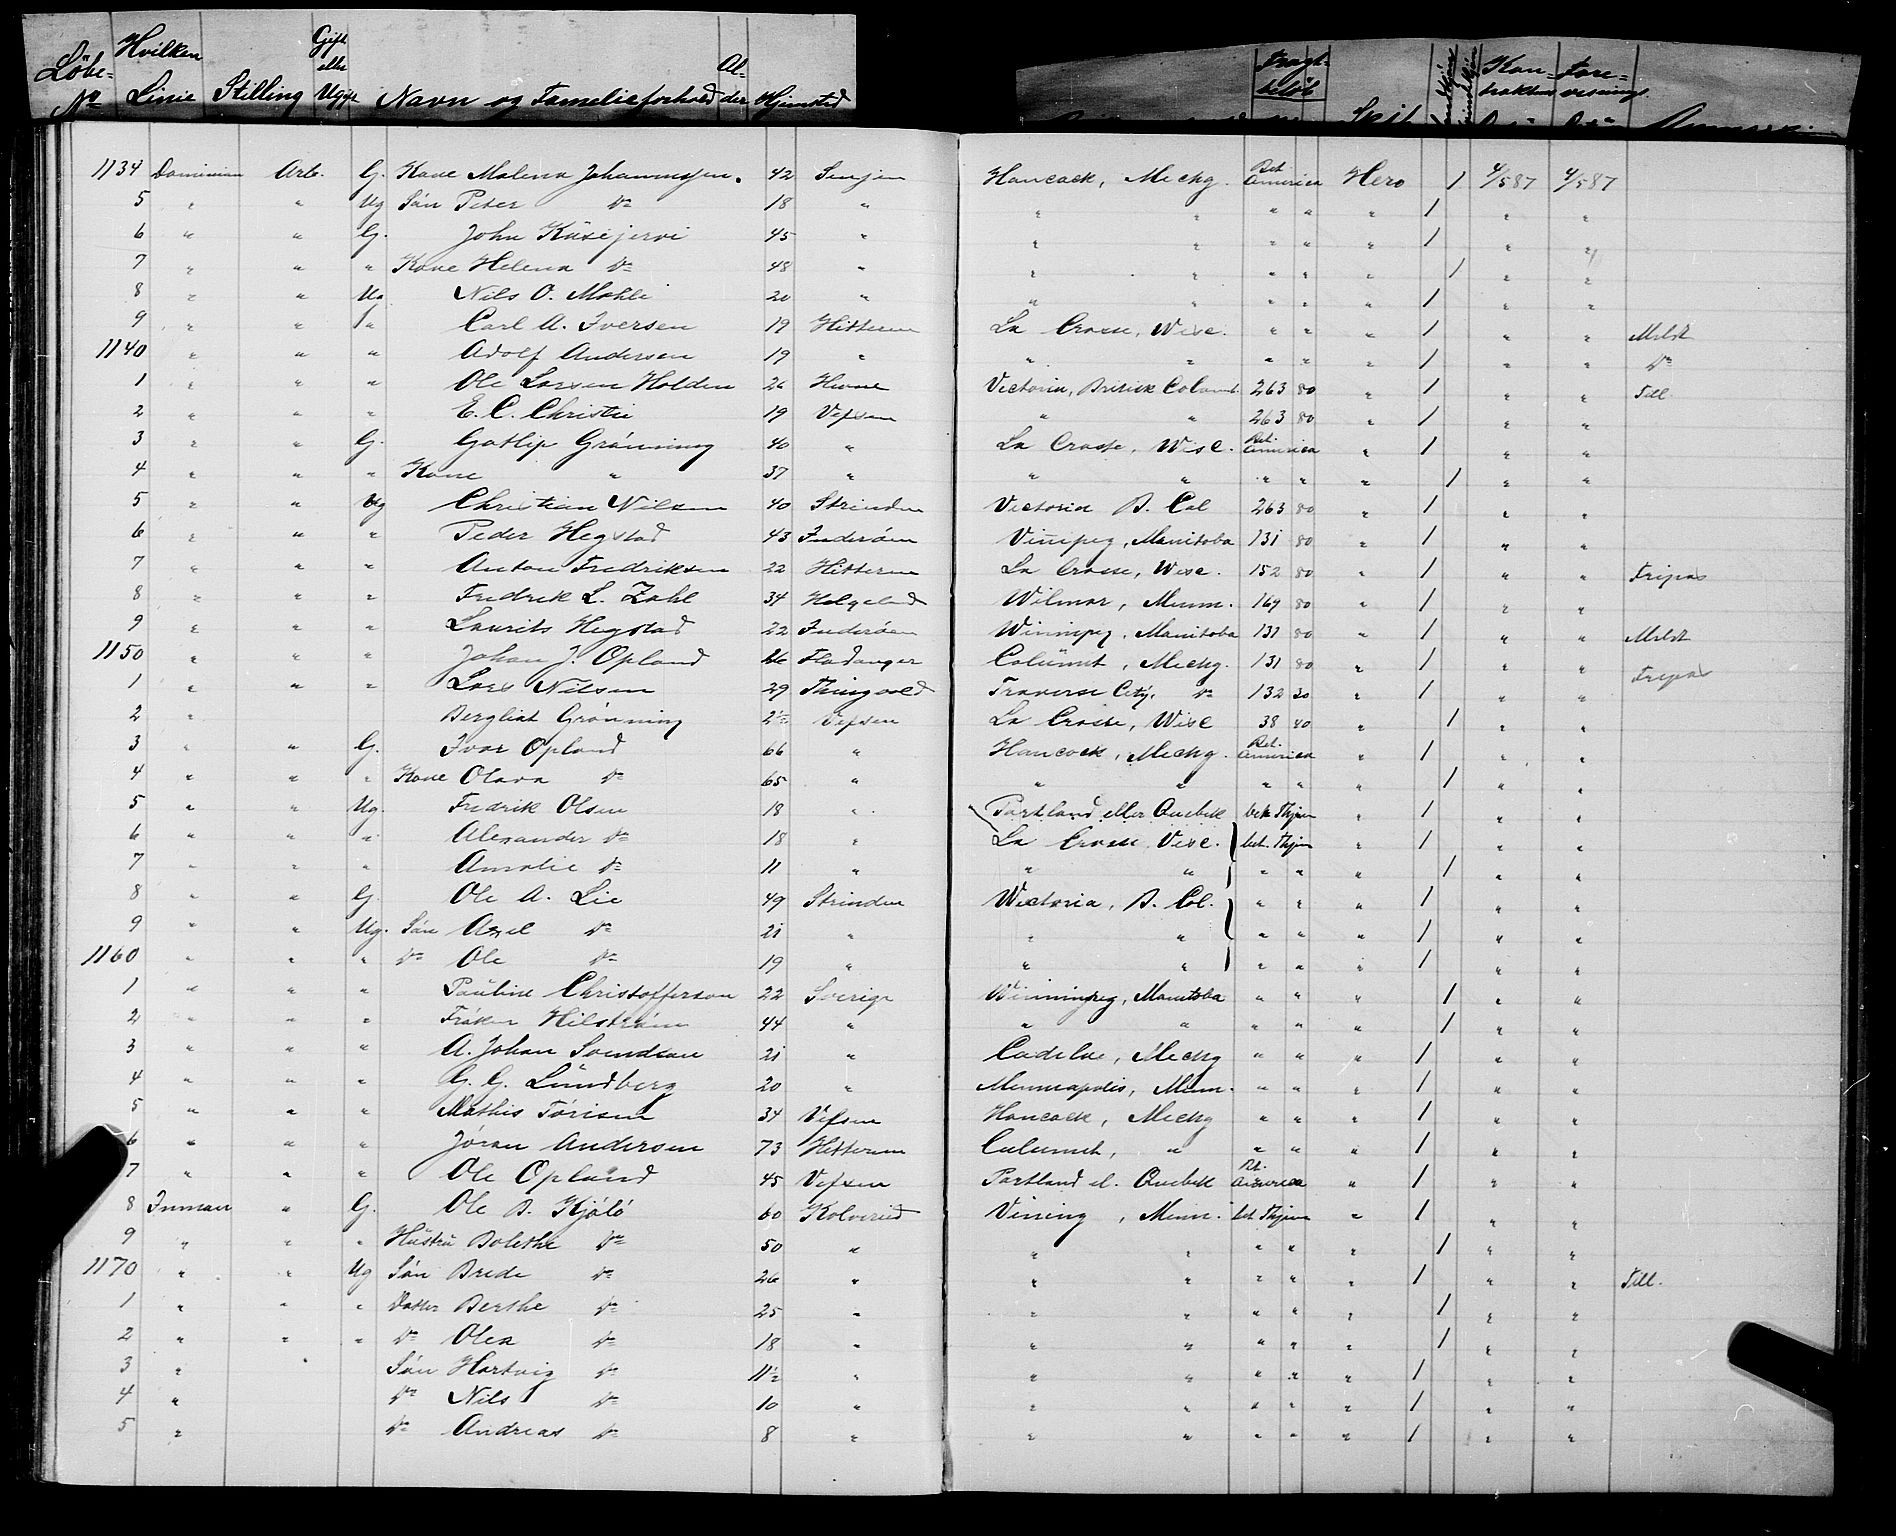 Löbe-No Hvilken Linie Stilling Gift eller Ugift Navn og Familieforhold Alder Hjemsted Fragtbeløb Skib Kontraktens Forevisnings
1134 Dominion Arb. G. Kone Malena Johannesen. 42 Senjen Hancock, Mechg. Bet. America Hero 1 4/5 87 4/5 87
5 " " Ug Søn Peter Do 18 " " " " " " 1 " "
6 " " G. John Kusejervi 45 " " " " " " 1 " "
7 " " " Kone Helena Do 48 " " " " " " 1 " "
8 " " Ug Nils O. Mohli 20 " " " " " " 1 " "
9 " " " Carl A. Iversen 19 Hitteren La Crosse, Wisc. " " " 1 " " Mrldt
1140 " " " Adolf Andersen 19 " " " " " " 1 " " Do
1 " " " Ole Larsen Holden 26 Hevne Victoria, British Columb. 263 80 " 1 " " Till
2 " " " E. C. Christie 19 Vefsen " " 263 80 " 1 " "
3 " " G. Gotlip Grønning 40 " La Crosse, Wisc. Bet. America " 1 " "
4 " " " Kone " 37 " " " " " " 1 " "
5 " " Ug Christian Nilsen 40 Strinden Victoria B. Col 263 80 " 1 " "
6 " " " Peder Hegstad 43 Inderøen Vinipeg, Manitoba 131 80 " 1 " "
7 " " " Anton Fredriksen 22 Hitteren La Crosse, Wisc. 152 80 " 1 " " Fripas
8 " " " Fredrik L. Zahl 34 Helgeland Wilmar, Minn. 169 80 " 1 " "
9 " " " Laurits Hegstad 22 Inderøen Winnipeg, Manitoba 131 80 " 1 " " Mrldt
1150 " " " Johan J. Opland 26 Fladanger Calumit, Mechg. 131 80 " 1 " " Fripas
1 " " " Lars Nilsen 29 Thingvold Traverse City, Do 132 30 " 1 " "
2 " Bergliat Grønning 2½ Vefsen La Crosse, Wisc 38 40 " 1 " "
3 " " G. Ivar Opland 66 " Hancock, Mechg. Bet. America " 1 " "
4 " " " Kone Olava Do 65 " " " " " " 1 " "
5 " " Ug. Fredrik Olsen 18 " Portland eller Quebek bet. Thjem " 1 " "
6 " " " Alexander Do 18 " La Crosse Visc. bet. Thjem " 1 " "
7 " " " Amalie Do 11 " " " " " " 1 " "
8 " " G. Ole A. Lie 49 Strinden Wictoria, B. Col. " " " 1 " "
9 " " Ug. Søn Axel Do 21 " " " " " " 1 " "
1160 " " " Do Ole Do 19 " " " " " " 1 " "
1 " " " Pauline Christofferson 22 Sverige Winningpeg, Manitoba " " " 1 " "
2 " " " Frøken Hilstrøm 44 " " " " " " 1 " "
3 " " " A. Johan Svendsen 21 " Cadilac, Mechg " " " 1 " "
4 " " " G. G. Lundberg 20 " Minneapolis, Minn. " " " 1 " "
5 " " " Mathis Torisen 34 Vefsen Hancock, Mechg " " " 1 " "
6 " " " Jøran Andersen 73 Hitteren Calumit, " " " " 1 " "
7 " " " Ole Opland 45 Vefsen Portland el. Quebek Bet. America " 1 " "
8 Inman " G. Ole B. Kjølø 60 Kolvereid Vining, Minn. bet. Thjem " 1 " "
9 " " " Hustru Bolethe Do 50 " " " " " " 1 " "
1170 " " Ug Søn Brede Do 26 " " " " " " 1 " " Till.
1 " " " Datter Berthe Do 25 " " " " " " 1 " "
2 " " " Do Olea Do 18 " " " " " " 1 " "
3 " Søn Hartvig Do 11½ " " " " " " 1 " "
4 " Do Nils Do 10 " " " " " " 1 " "
5 " Do Andreas Do 8 " " " " " " 1 " "